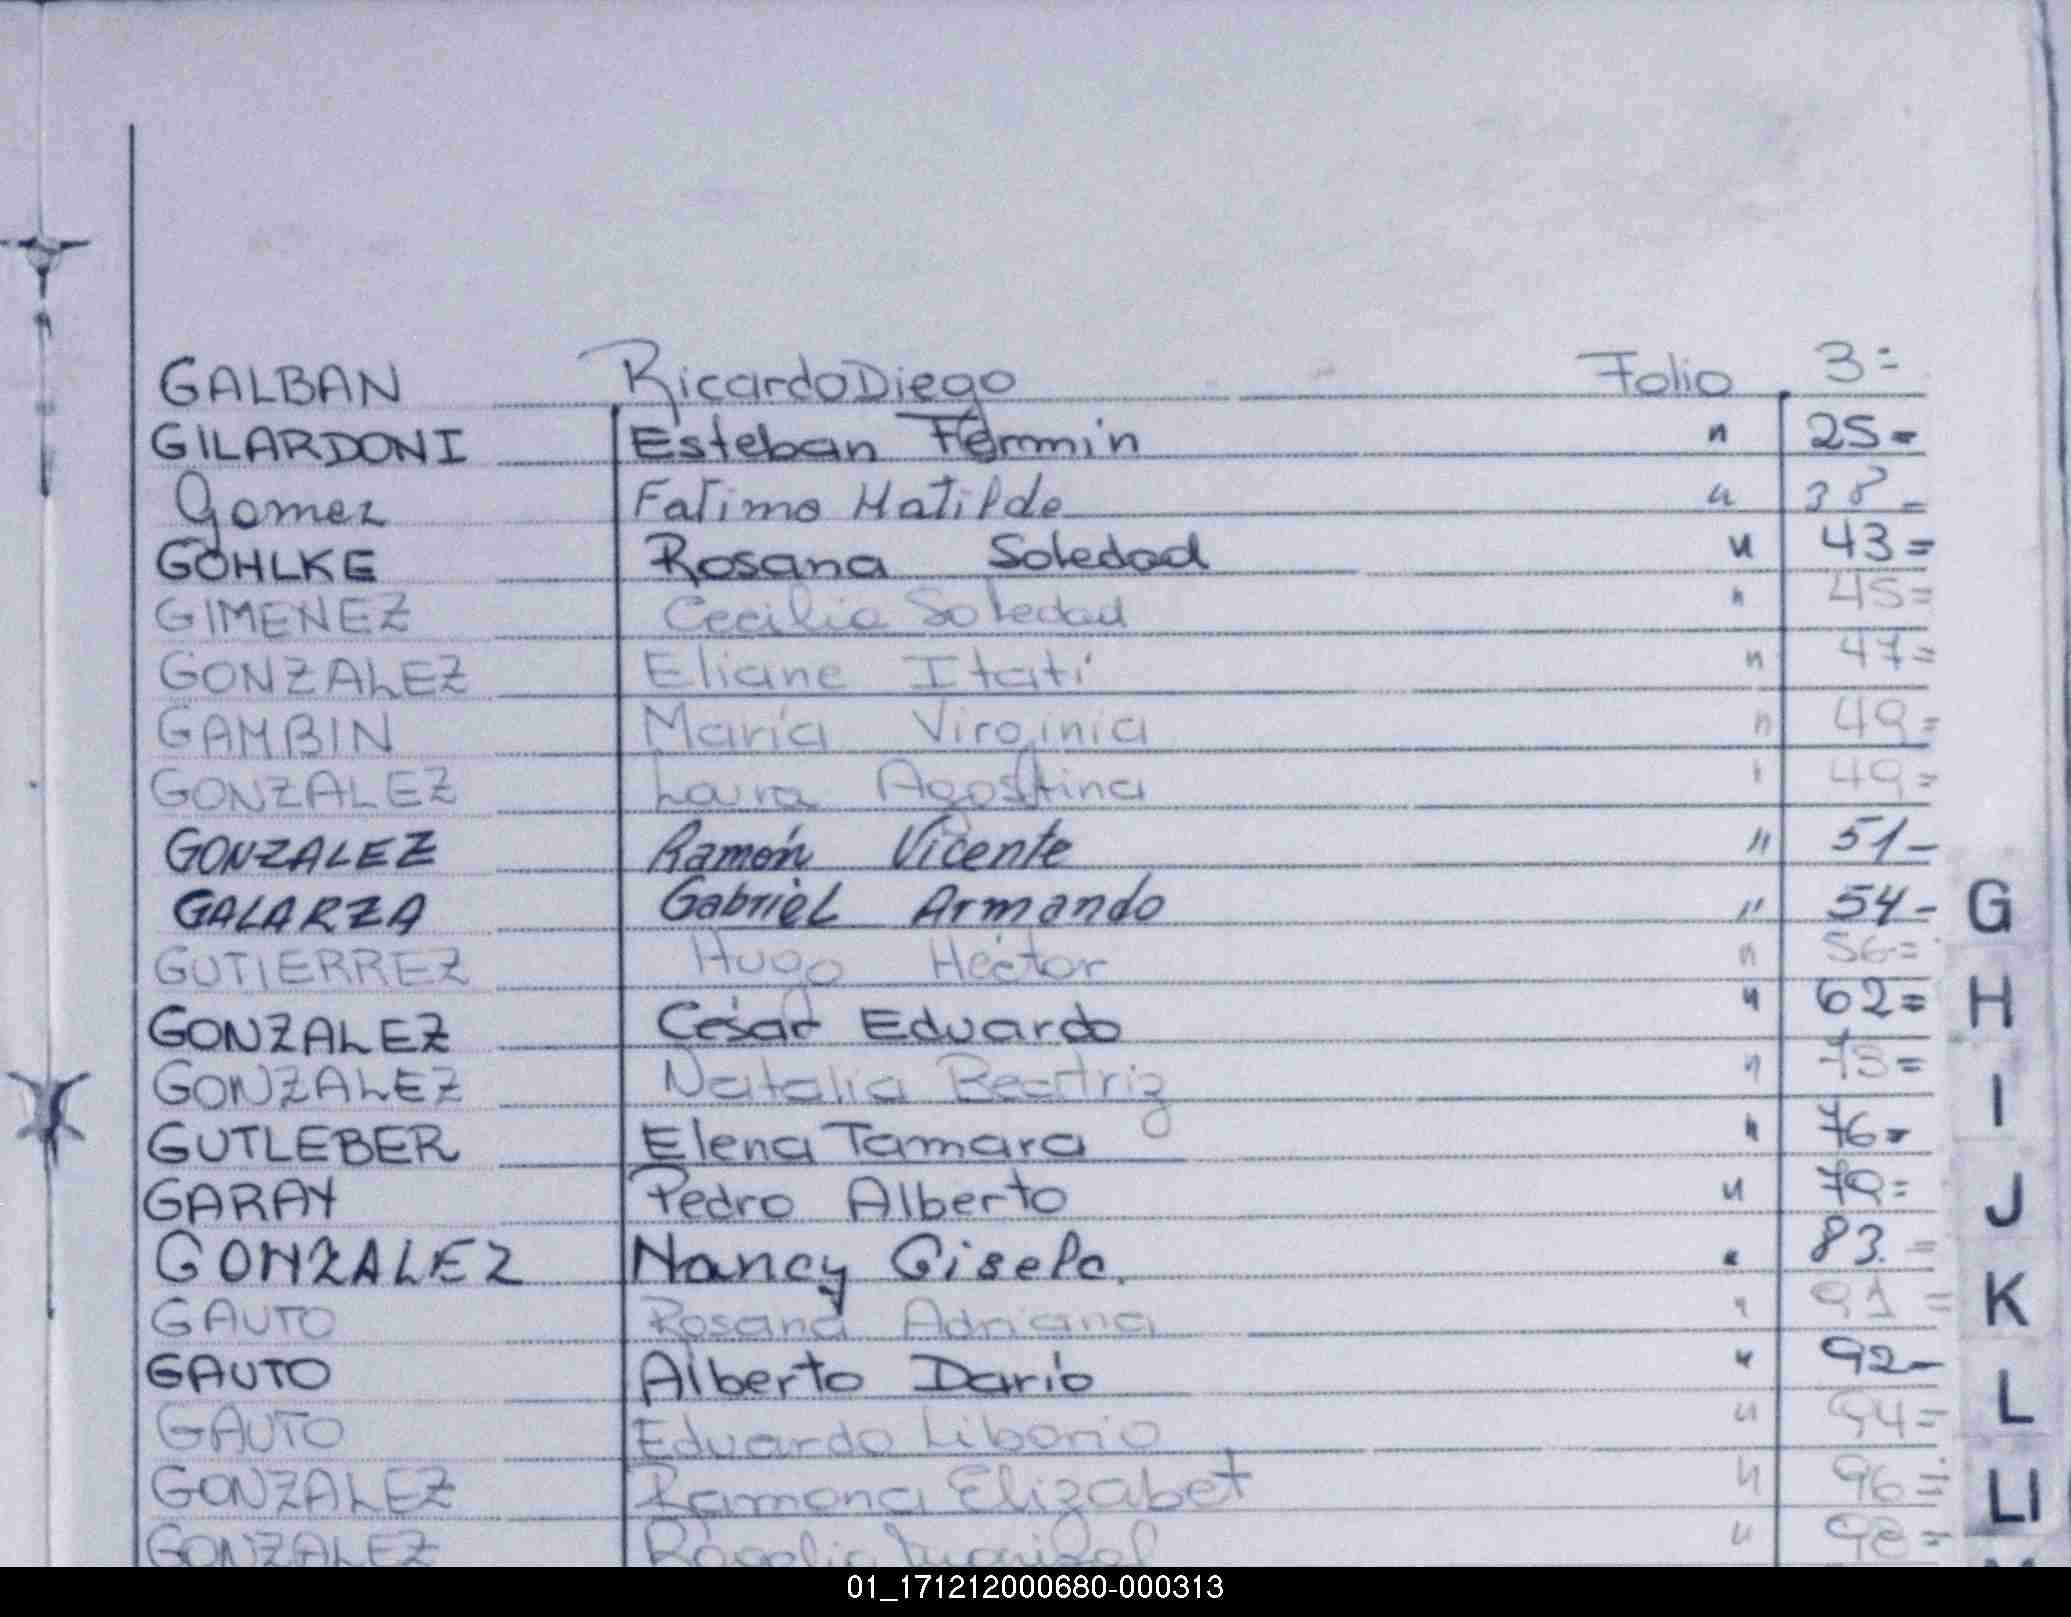 GALBAN Ricardo Diego Folio 3=
GILARDONI Esteban Fermin " 25=
Gomez Fatima Matilde " 38=
GOHLKE Rosana Soledad " 43=
GIMENEZ Cecilia Soledad " 45=
GONZALEZ Eliane Itatí " 47=
GAMBIN María Virginia " 49=
GONZALEZ Laura Agostina " 49=
GONZALEZ Ramón Vicente " 51-
GALARZA Gabriel Armando " 54-
GUTIERREZ Hugo Héctor " 56=
GONZALEZ César Eduardo " 62=
GONZALEZ Natalia Beatriz " 73=
GUTLEBER Elena Tamara " 76=
GARAY Pedro Alberto " 79=
GONZALEZ Nancy Gisela. " 83.=
GAUTO Rosana Adriana " 91=
GAUTO Alberto Darío " 92-
GAUTO Eduardo Liborio " 94=
GONZALEZ Ramona Elizabet " 96=
GONZALEZ Rogelio " 98=
G
H
I
J
K
L
Ll
01_171212000680-000313